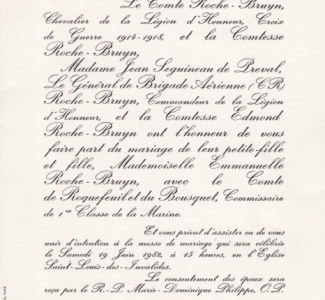 Le Comte Roche-Bruyn,
Chevalier de la Légion d'Honneur, Croix
de Guerre 1914-1918, et la Comtesse
Roche-Bruyn,
Madame Jean Seguineau de Preval,
Le Général de Brigade Aérienne (CR)
Roche-Bruyn, Commandeur de la Légion
d'Honneur, et la Comtesse Edmond
Roche-Bruyn ont l'honneur de vous
faire part du mariage de leur petite-fille
et fille, Mademoiselle Emmanuelle
Roche-Bruyn, avec le Comte
de Roquefeuil et du Bousquet, Commissaire
de 1ère Classe de la Marine.
Et vous prient d'assister ou de vous
unir d'intention à la messe de mariage qui sera célébrée
le Samedi 19 Juin 1982, à 15 heures, en l'Église
Saint-Louis-des-Invalides.
Le consentement des époux sera
reçu par le R.-P. Marie-Dominique Philippe, O.P.